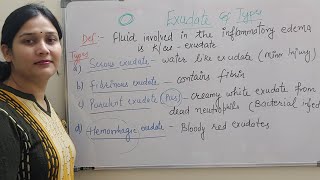 Exudate & Types
Def:- Fluid involved in the inflammatory edema
is k/as - exudate
Types
a) Serous exudate - water like exudate (minor Injury)
b) Fibrinous exudate - contains fibrin
c) Purulent exudate (Pus) - creamy white exudate from
dead neutrophils (Bacterial infec
d) Hemorrhagic exudate - Bloody red exudates